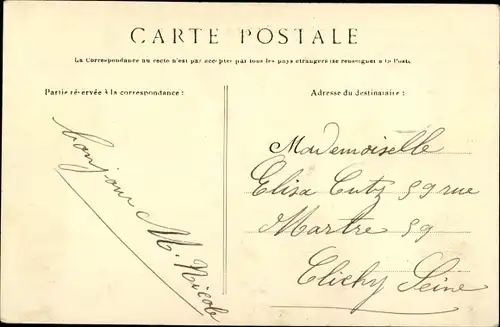 CARTE POSTALE
La Correspondance au recto n'est pas acceptée par tous les pays étrangers (se renseigner à la Poste
Partie réservée à la correspondance :
Adresse du destinataire :
bonjour M. Nicole
Mademoiselle
Elisa Cutz 59 rue
Martre 59
Clichy Seine